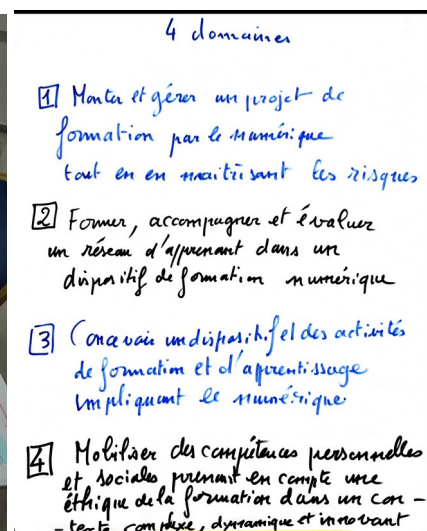 4 domaines
1 Monter et gérer un projet de
formation par le numérique
tout en en maitrisant les risques
2 Former, accompagner et évaluer
un réseau d'apprenant dans un
dispositif de formation numérique
3 Concevoir un dispositif et des activités
de formation et d'apprentissage
impliquant le numérique
4 Mobiliser des compétences personnelles
et sociales prenant en compte une
éthique de la formation dans un con-
-texte complexe, dynamique et innovant